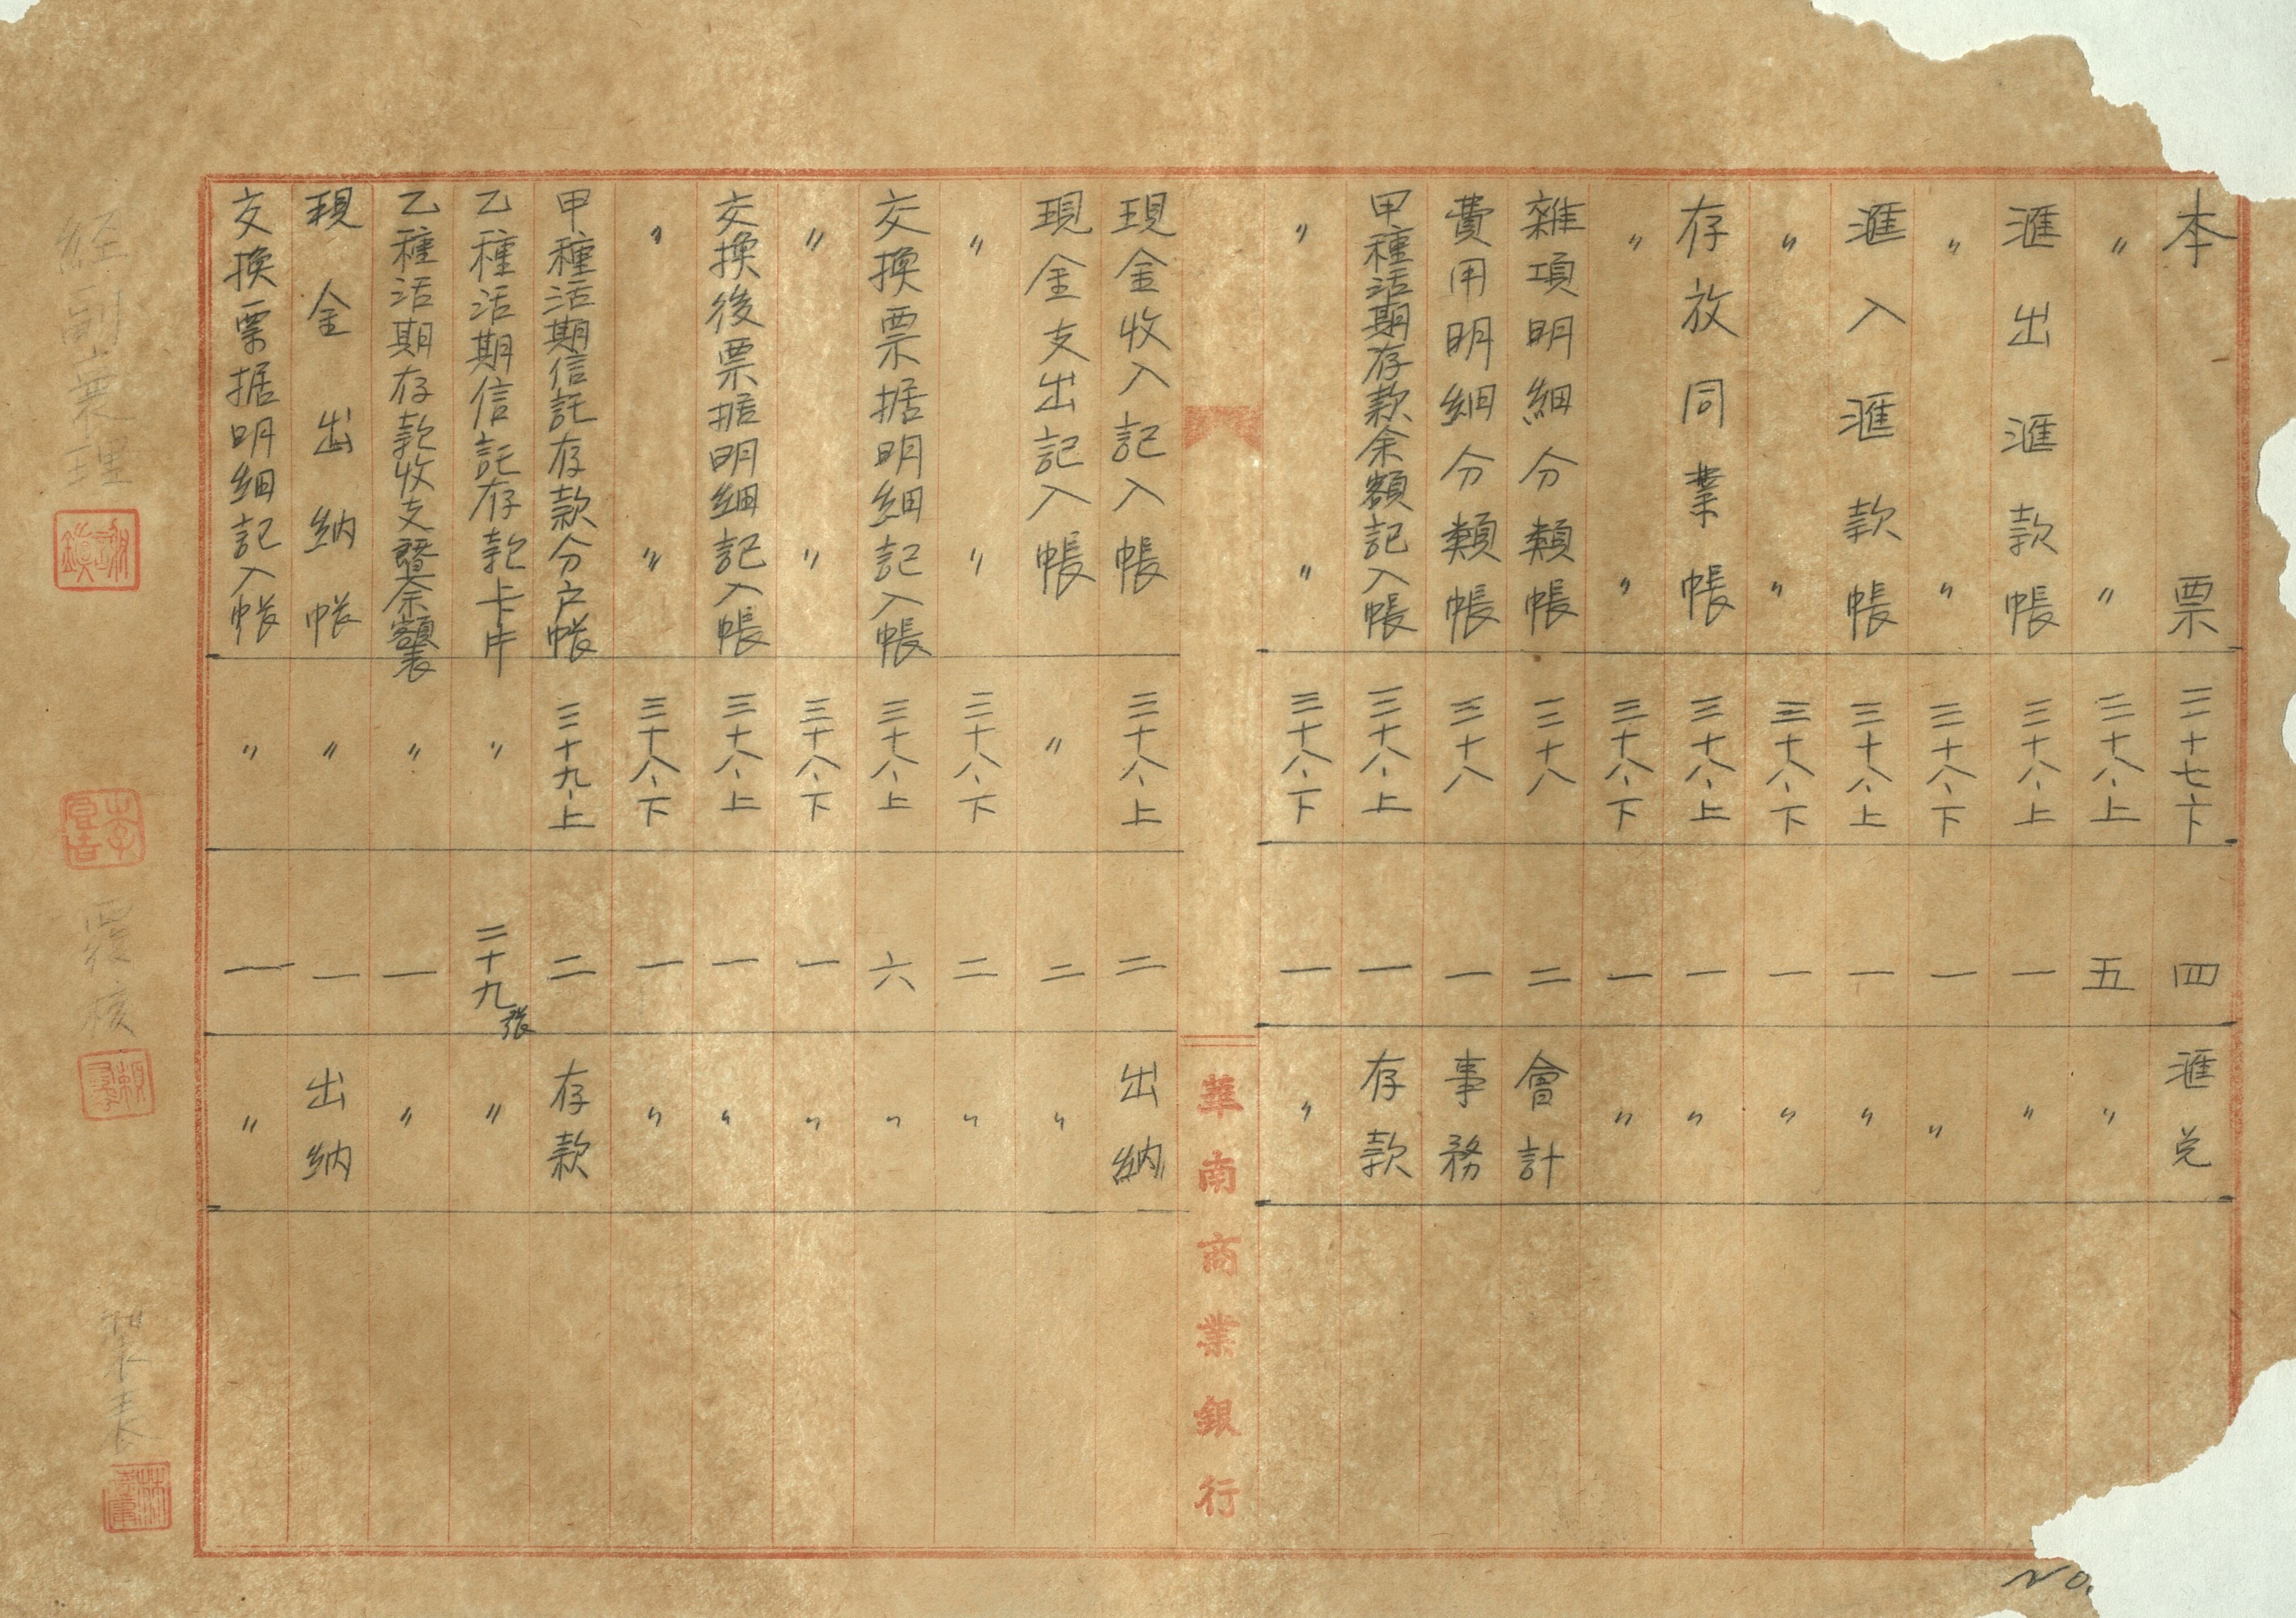 本票 三十七、下 四 滙兌
〃 〃 三十八、上 五 〃
滙出滙款帳 三十八、上 一 〃
〃 〃 三十八、下 一 〃
滙入滙款帳 三十八、上 一 〃
〃 〃 三十八、下 一 〃
存放同業帳 三十八、上 一 〃
〃 〃 三十八、下 一 〃
雜項明細分類帳 三十八 二 會計
費用明細分類帳 三十八 一 事務
甲種活期存款余額記入帳 三十八、上 一 存款
〃 〃 三十八、下 一 〃
華南商業銀行
現金收入記入帳 三十八、上 二 出納
現金支出記入帳 〃 二 〃
〃 〃 三十八、下 二 〃
交換票据明細記入帳 三十八、上 六 〃
〃 〃 三十八、下 一 〃
交換後票据明細記入帳 三十八、上 一 〃
〃 〃 三十八、下 一 〃
甲種活期信託存款分户帐 三十九、上 二 存款
乙種活期信託存款卡片 〃 二十九張 〃
乙種活期存款收支暨余額表 〃 一 〃
現金出納帐 〃 一 出納
交換票据明細記入帐 〃 一 〃
經副襄理
覆核
製表
No.